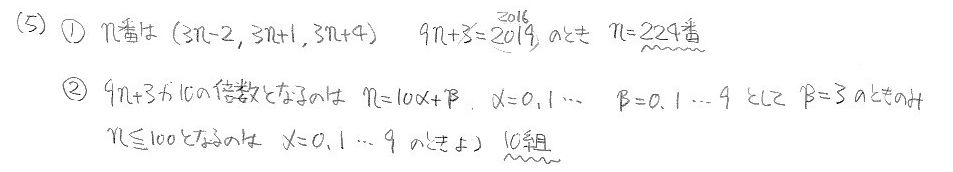 (5) ① n番は (3n-2, 3n+1, 3n+4) 9n+3=2019 2016 のとき n=224番
② 9n+3が10の倍数となるのは n=10α+β. α=0.1… β=0.1…9 として β=3のときのみ
n≦100となるのは α=0.1…9 のときより 10組